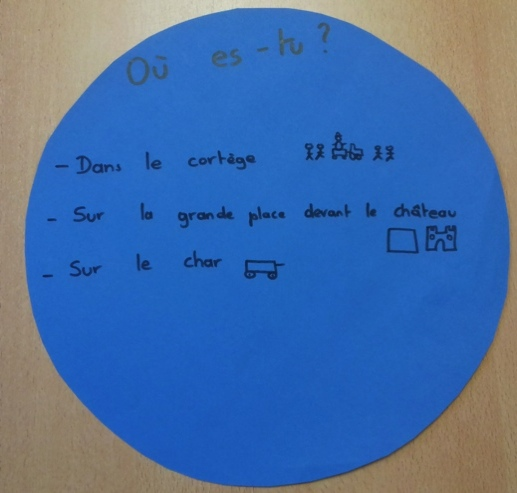 Où es-tu ?
- Dans le cortège
- Sur la grande place devant le château
- Sur le char